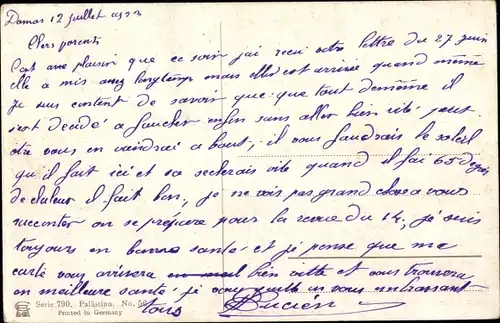 Damas 12 juillet 1923
Chers parents
C'est avec plaisir que ce soir j'ai recu votre lettre du 27 juin
elle a mis assez longtemps mais elle est arrivée quand même
Je suis content de savoir que tout de même il
s'est decidé a faucher enfin sans aller bien vite peut
être vous en viendrai a bout, il vous faudrais le soleil
qu'il fait ici et sa secherais vite quand il fai 65 degres
de chaleur il fait bon, je ne vois pas grand chose a vous
raconter on se prépare pour la revue du 14, je suis
toujours en bonne santé et je pense que ma
carte vous arrivera bien vite et vous trouvera
en meilleure santé je vous quitte en vous embrassant
tous Lucien
Serie 790, Palästina. No. 56
Printed in Germany